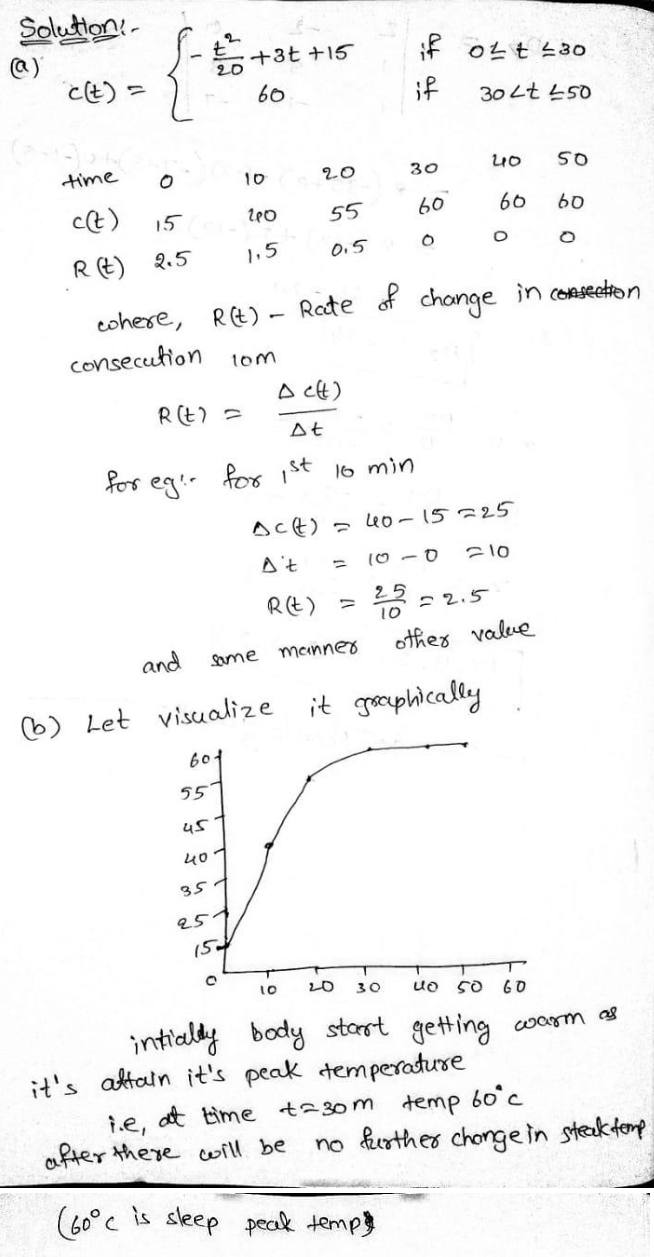 Solution:-
(a)
c(t) = { -t²/20 + 3t + 15 if 0 ≤ t ≤ 30
60 if 30 < t ≤ 50
time 0 10 20 30 40 50
c(t) 15 40 55 60 60 60
R(t) 2.5 1.5 0.5 0 0 0
where, R(t) - Rate of change in consection
consecution 10m
R(t) = Δc(t)/Δt
for eg:- for 1st 10 min
Δc(t) = 40 - 15 = 25
Δt = 10 - 0 = 10
R(t) = 25/10 = 2.5
and same manner other value
(b) Let visualize it graphically
60
55
45
40
35
25
15
0
10 20 30 40 50 60
intially body start getting warm as
it's attain it's peak temperature
i.e, at time t=30m temp 60°c
after there will be no further change in steak temp
(60°c is sleep peak temp)